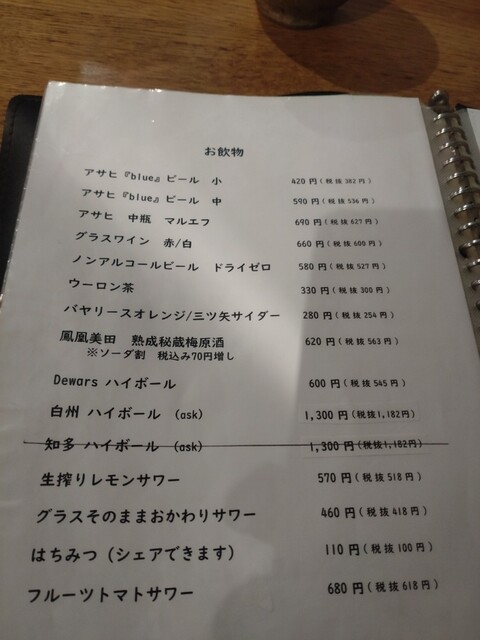 お飲物
アサヒ『blue』ビール 小 420円(税抜382円)
アサヒ『blue』ビール 中 590円(税抜536円)
アサヒ 中瓶 マルエフ 690円(税抜627円)
グラスワイン 赤/白 660円(税抜600円)
ノンアルコールビール ドライゼロ 580円(税抜527円)
ウーロン茶 330円(税抜300円)
バヤリースオレンジ/三ツ矢サイダー 280円(税抜254円)
鳳凰美田 熟成秘蔵梅原酒 620円(税抜563円)
※ソーダ割 税込み70円増し
Dewars ハイボール 600円(税抜545円)
白州 ハイボール (ask) 1,300円(税抜1,182円)
知多 ハイボール (ask) 1,300円(税抜1,182円)
生搾りレモンサワー 570円(税抜518円)
グラスそのままおかわりサワー 460円(税抜418円)
はちみつ(シェアできます) 110円(税抜100円)
フルーツトマトサワー 680円(税抜618円)